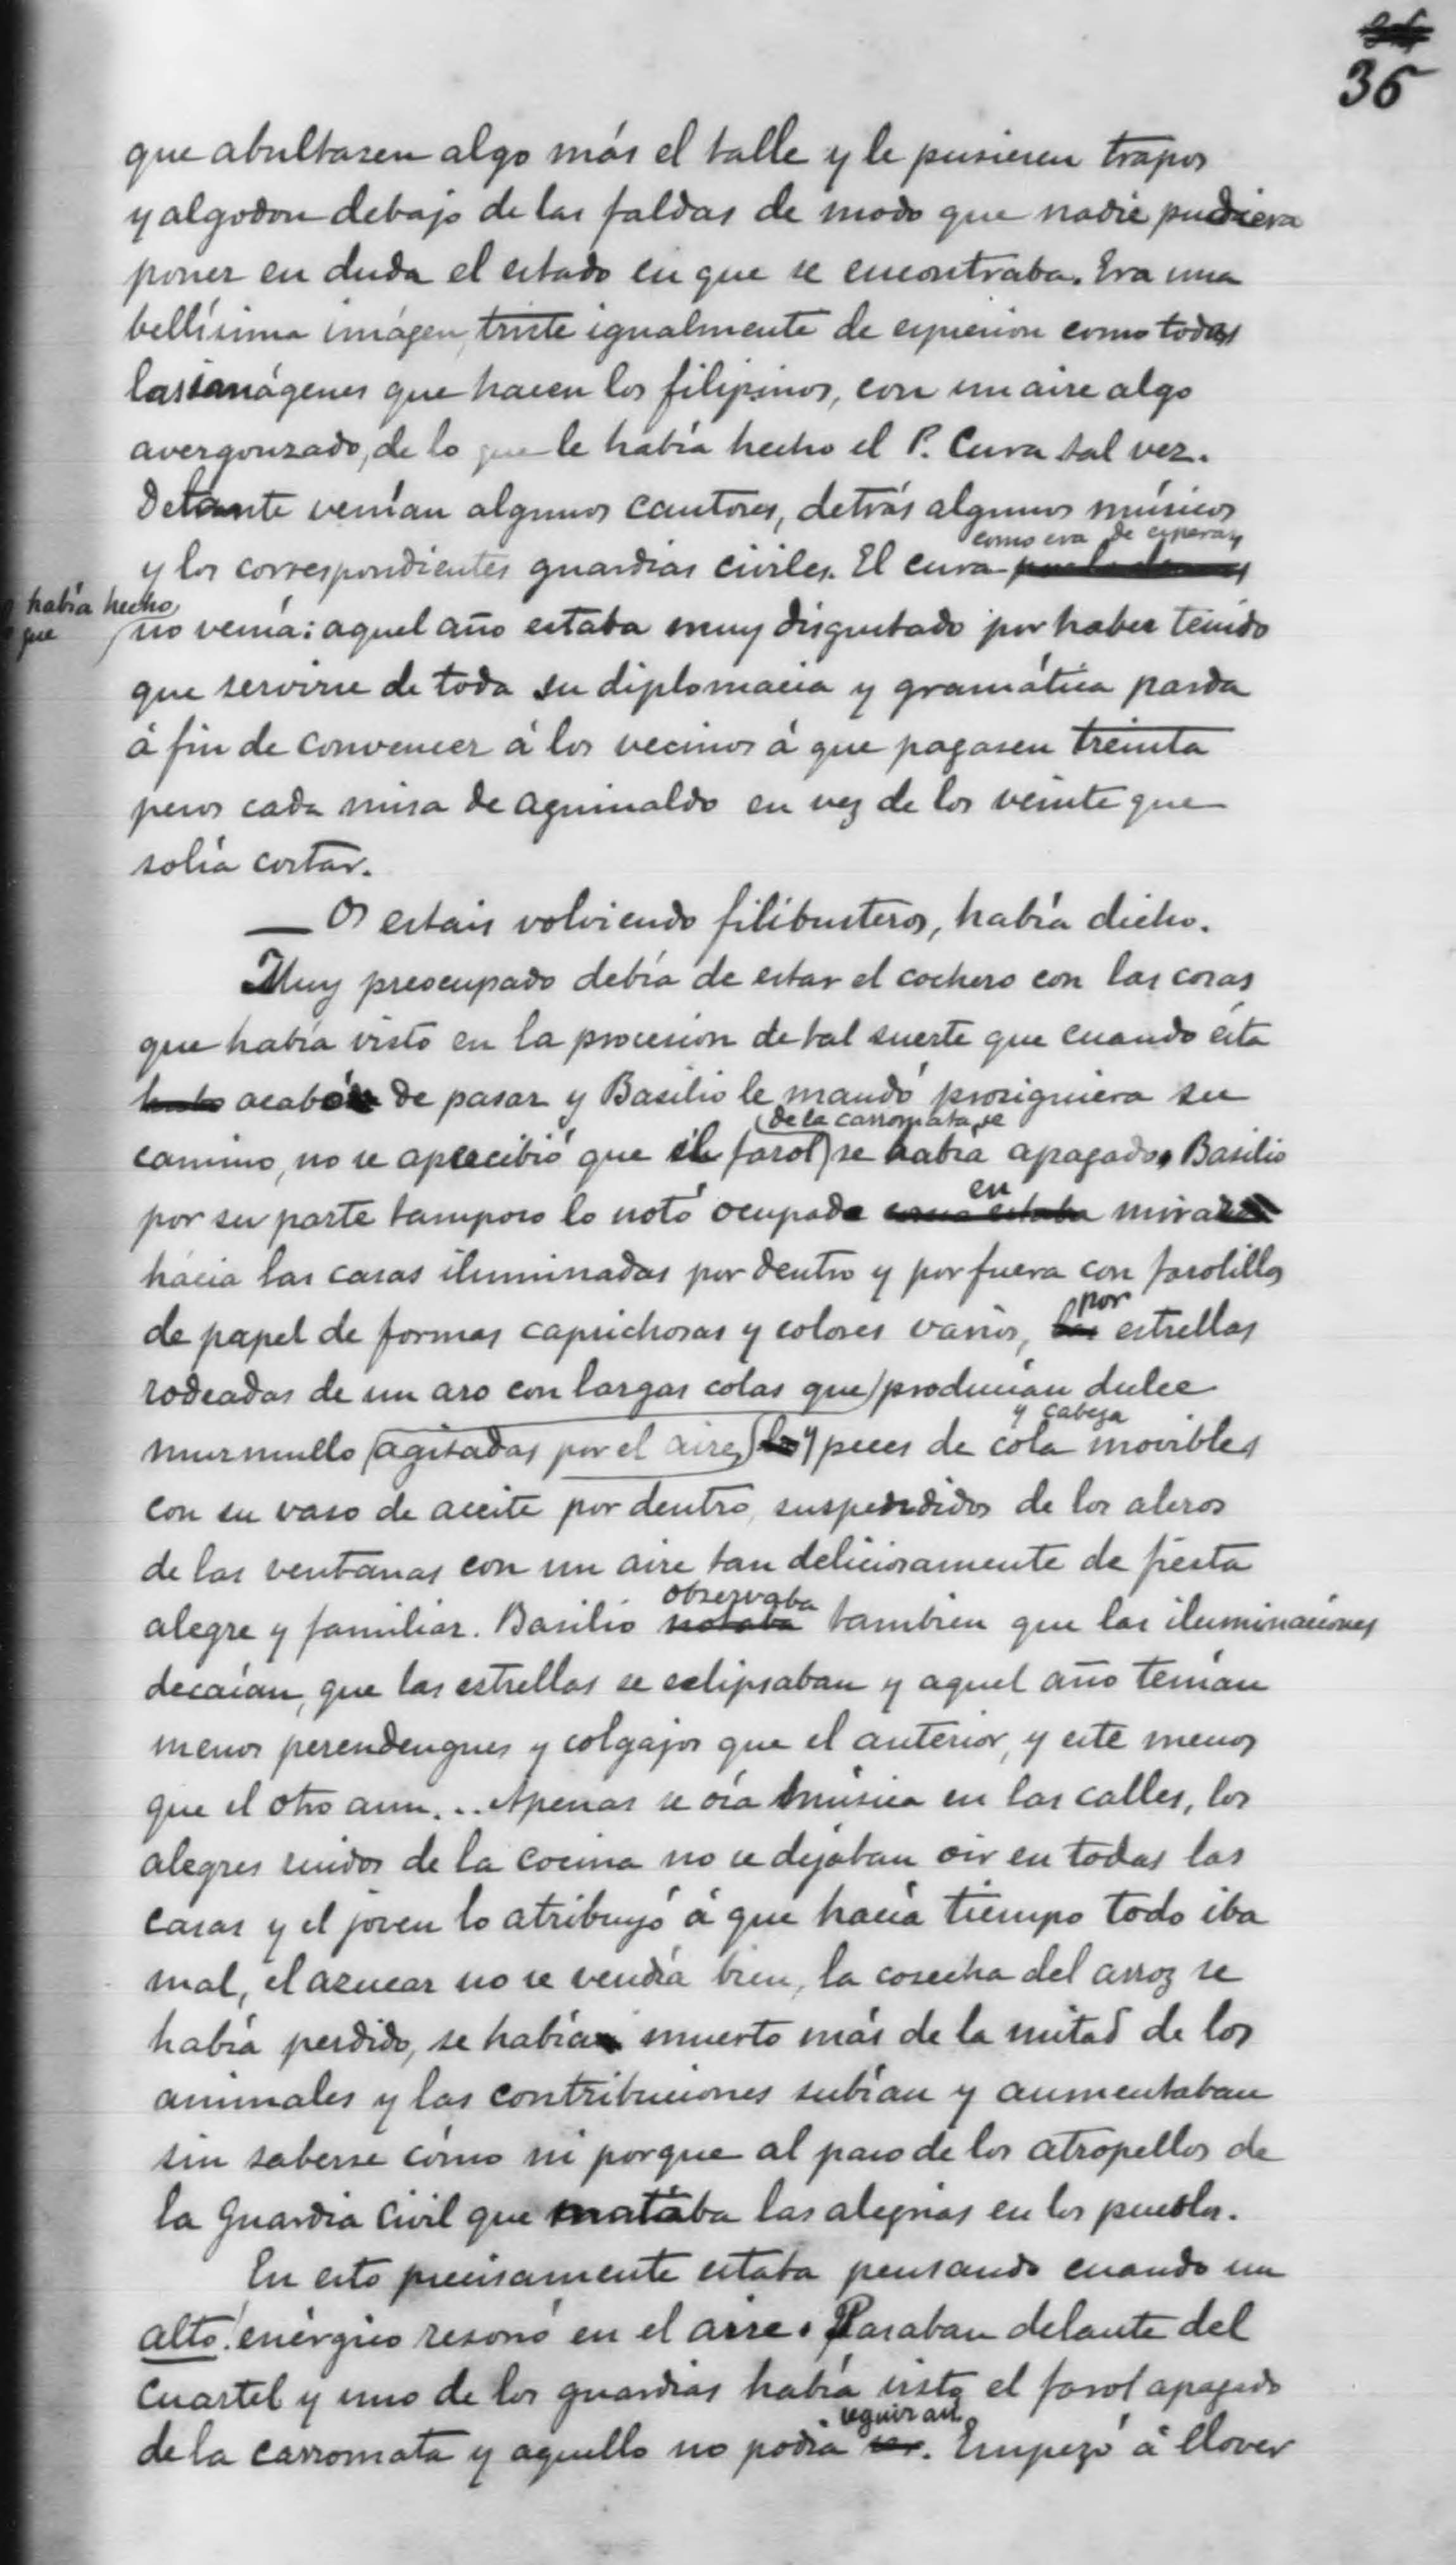 36
que abultasen algo más el talle y le pusiesen trapos
y algodon debajo de las faldas de modo que nadie pudiera
poner en duda el estado en que se encontraba. Era una
bellísima imágen, triste igualmente de expresion como todas
las imágenes que hacen los filipinos, con un aire algo
avergonzado, de lo que le había hecho el P. Cura tal vez.
Delante venían algunos cantores, detrás algunos músicos
como era de esperar,
y los correspondientes guardias civiles. El cura
había hecho
que
no venía: aquel año estaba muy disgustado por haber tenido
que servirse de toda su diplomacia y gramática parda
á fin de convencer á los vecinos á que pagasen treinta
pesos cada misa de aguinaldo en vez de los veinte que
solía costar.
— Os estais volviendo filibusteros, había dicho.
Muy preocupado debía de estar el cochero con las cosas
que había visto en la procesion de tal suerte que cuando esta
acabó de pasar y Basilio le mandó prosiguiera su
de la carromata se
camino, no se apercibió que el farol se había apagado. Basilio
en
por su parte tampoco lo notó ocupado como estaba mirar
hácia las casas iluminadas por dentro y por fuera con farolillos
por
de papel de formas caprichosas y colores varios, las estrellas
rodeadas de un aro con largas colas que producían dulce
y cabeza
murmullo agitadas por el aire, y peces de cola movibles
con su vaso de aceite por dentro, suspendidos de los aleros
de las ventanas con un aire tan deliciosamente de fiesta
observaba
alegre y familiar. Basilio notaba tambien que las iluminaciones
decaían, que las estrellas se eclipsaban y aquel año tenían
menos perendengues y colgajos que el anterior, y este menos
que el otro aun... Apenas se oía música en las calles, los
alegres ruidos de la cocina no se dejaban oir en todas las
casas y el joven lo atribuyó á que hacía tiempo todo iba
mal, el azucar no se vendía bien, la cosecha del arroz se
había perdido, se había muerto más de la mitad de los
animales y las contribuciones subían y aumentaban
sin saberse cómo ni porque al paso de los atropellos de
la Guardia Civil que mataba las alegrías en los pueblos.
En esto precisamente estaba pensando cuando un
alto! enérgico resonó en el aire. Pasaban delante del
cuartel y uno de los guardias había visto el farol apagado
seguir así.
de la carromata y aquello no podía ser. Empezó á llover